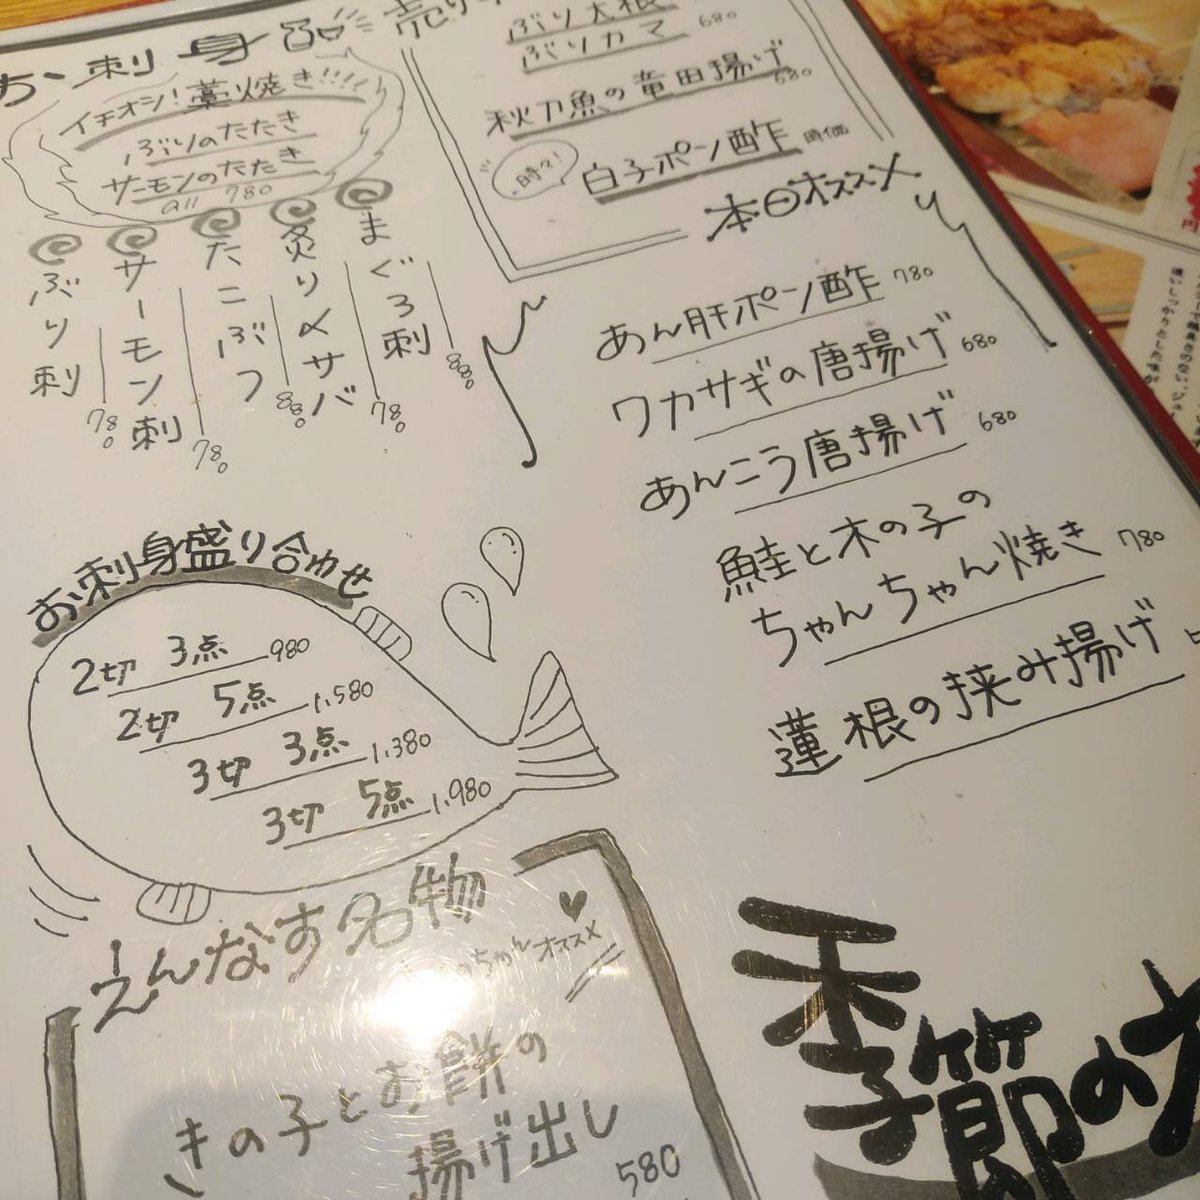 お刺身
イチオシ!藁焼き!!!!
ぶりのたたき
サーモンのたたき
all 780
まぐろ刺 880
炙り〆サバ 780
たこぶつ 880
サーモン刺 780
ぶり刺 780
ぶり大根
ぶりカマ 680
秋刀魚の竜田揚げ 680
時々!
白子ポン酢 時価
本日オススメ
あん肝ポン酢 780
ワカサギの唐揚げ 680
あんこう唐揚げ 680
鮭と木の子の
ちゃんちゃん焼き 780
蓮根の挟み揚げ
お刺身盛り合わせ
2切 3点 980
2切 5点 1,580
3切 3点 1,380
3切 5点 1,980
えんなす名物
ちゃんオススメ
きの子とお餅の
揚げ出し
580
季節の